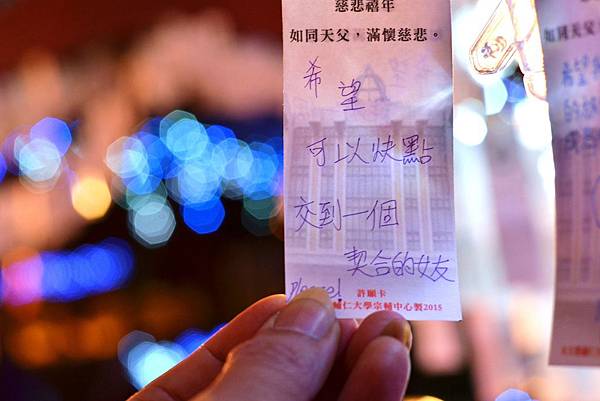 慈悲禧年
如同天父,滿懷慈悲。
希望
可以快點
交到一個
契合的女友
please!
許願卡
輔仁大學宗輔中心製2015
希望